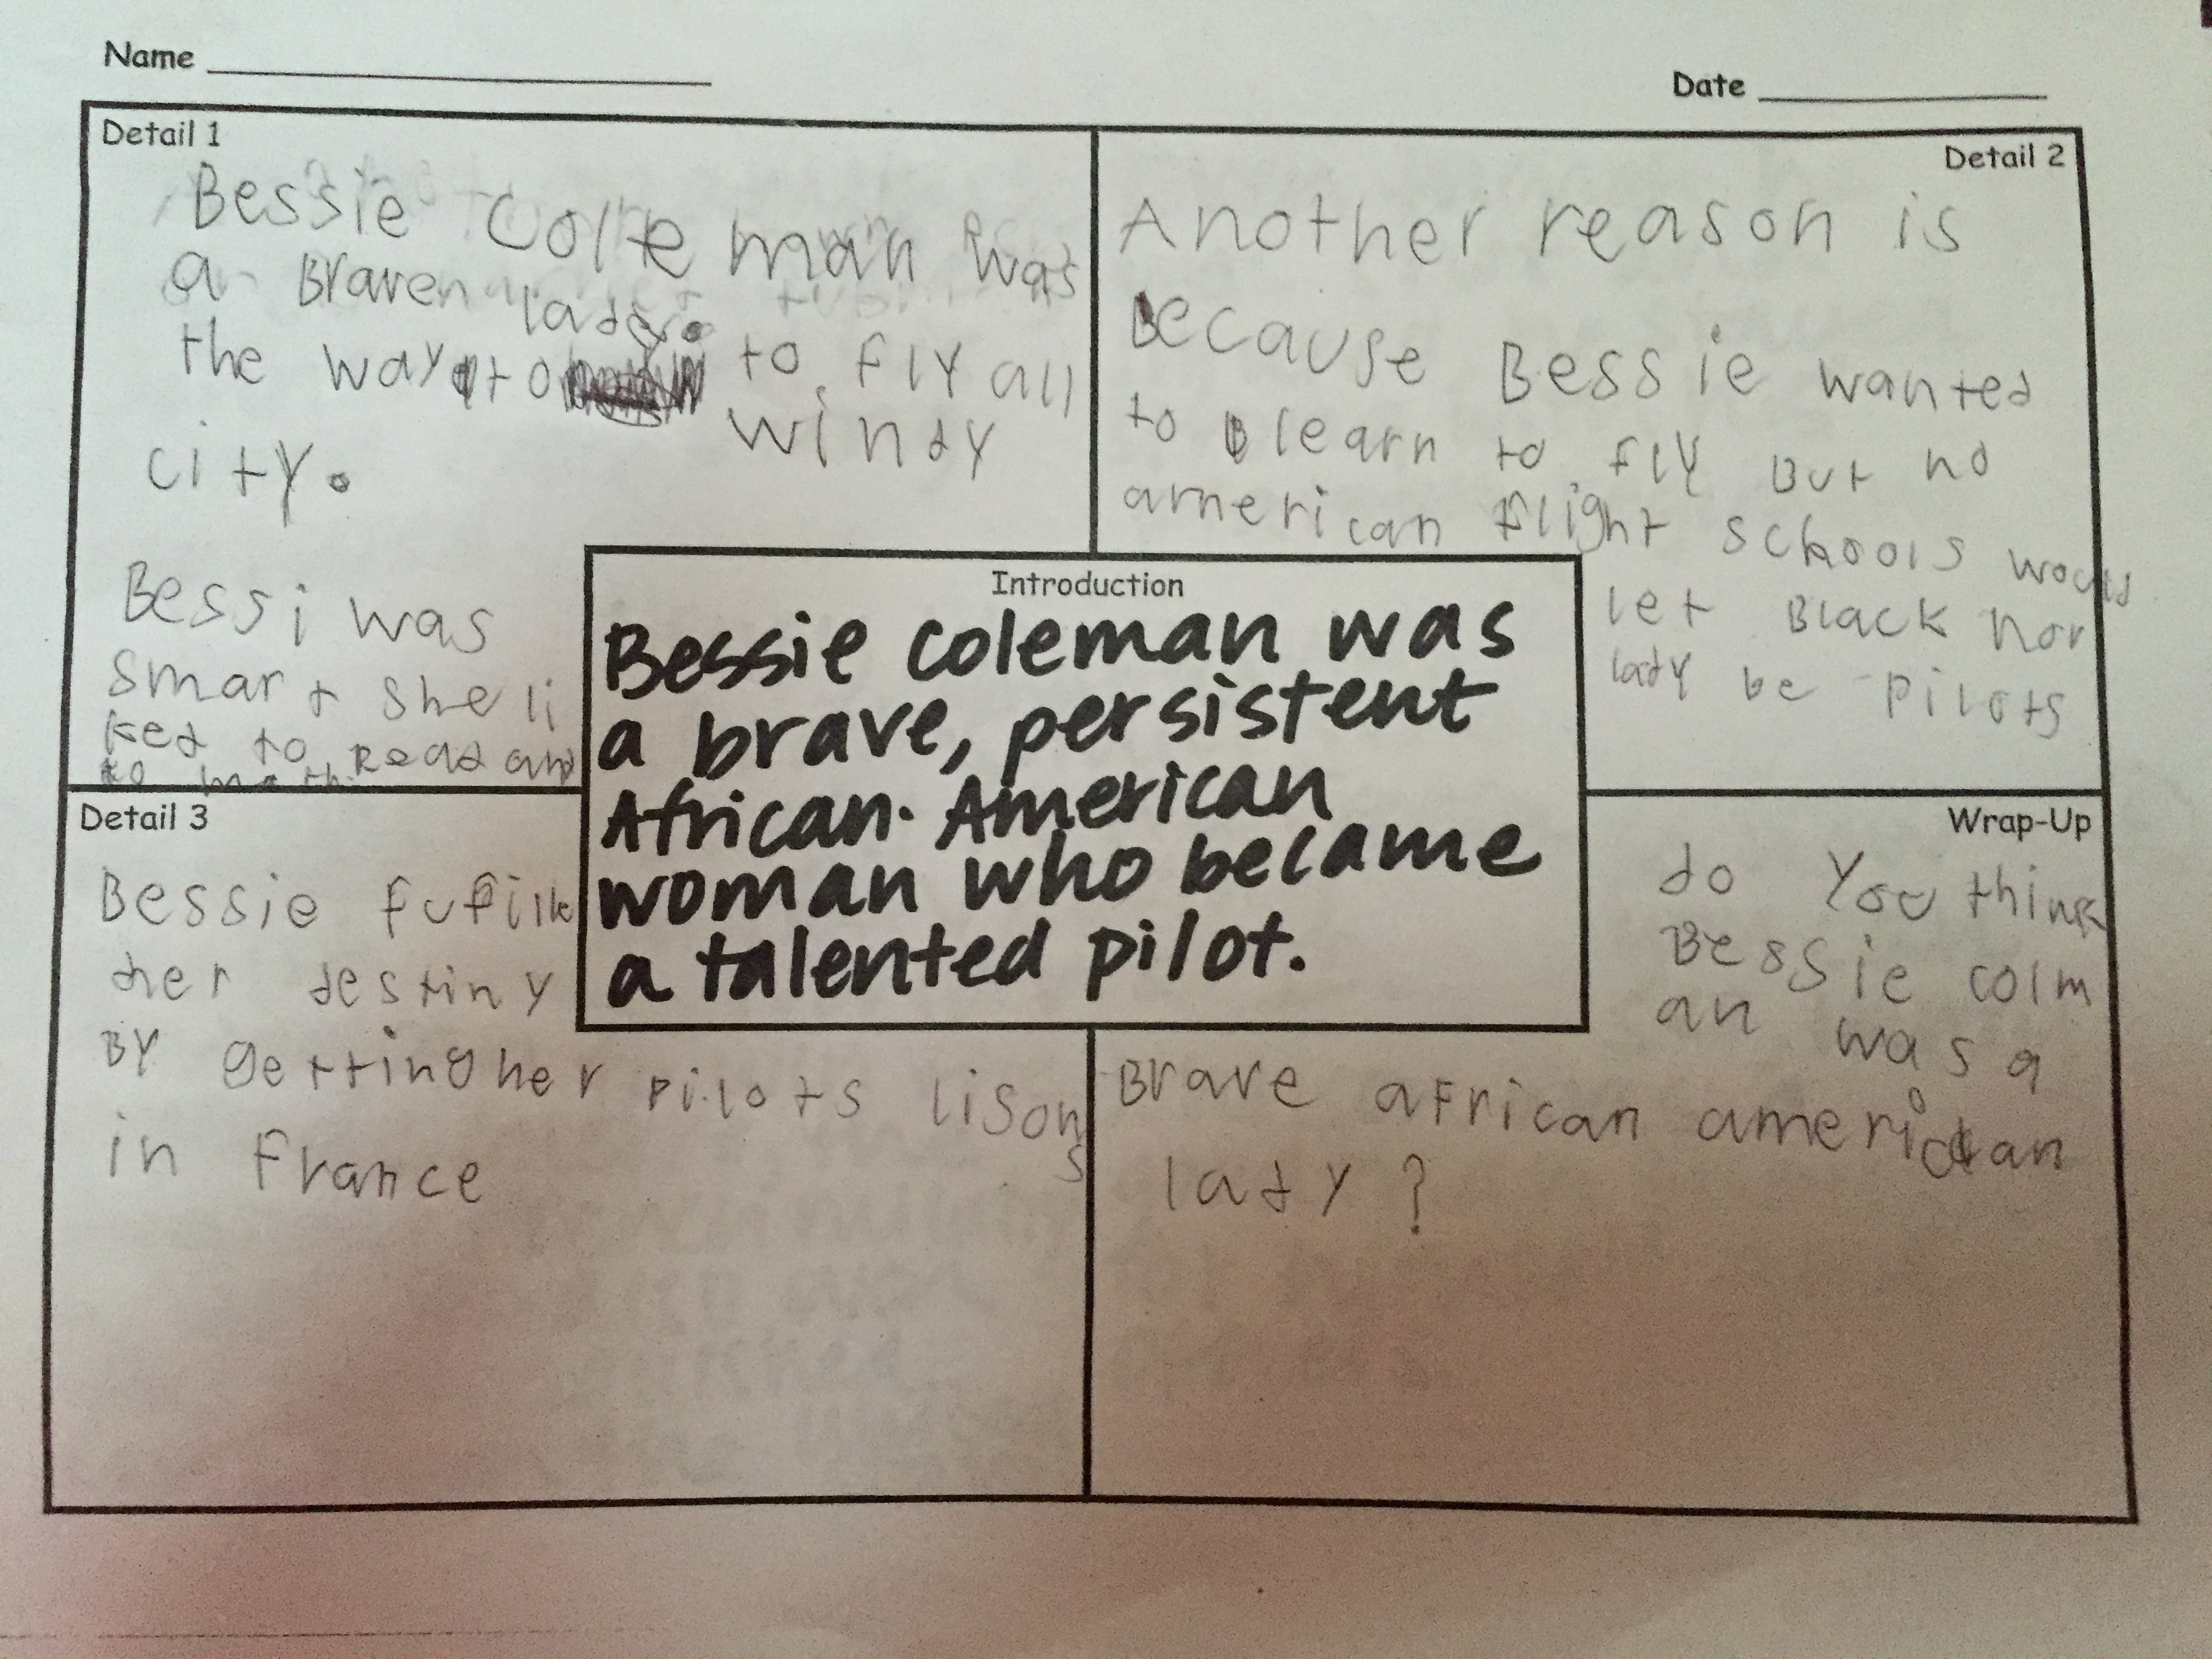 Name
Date
Detail 1
Bessie Coleman was
a Braven lady.
the way to to fly all
windy
city.
Bessi was
smart she li
ked to Read and
to math
Detail 2
Another reason is
Because Bessie wanted
to learn to fly But no
american flight schools would
let Black nor
lady be pilots
Introduction
Bessie coleman was
a brave, persistent
African-American
woman who became
a talented pilot.
Detail 3
Bessie
her destiny
By getting her pilots lison
s
in france
Wrap-Up
do you think
Bessie colm
an was a
Brave african american
lady?